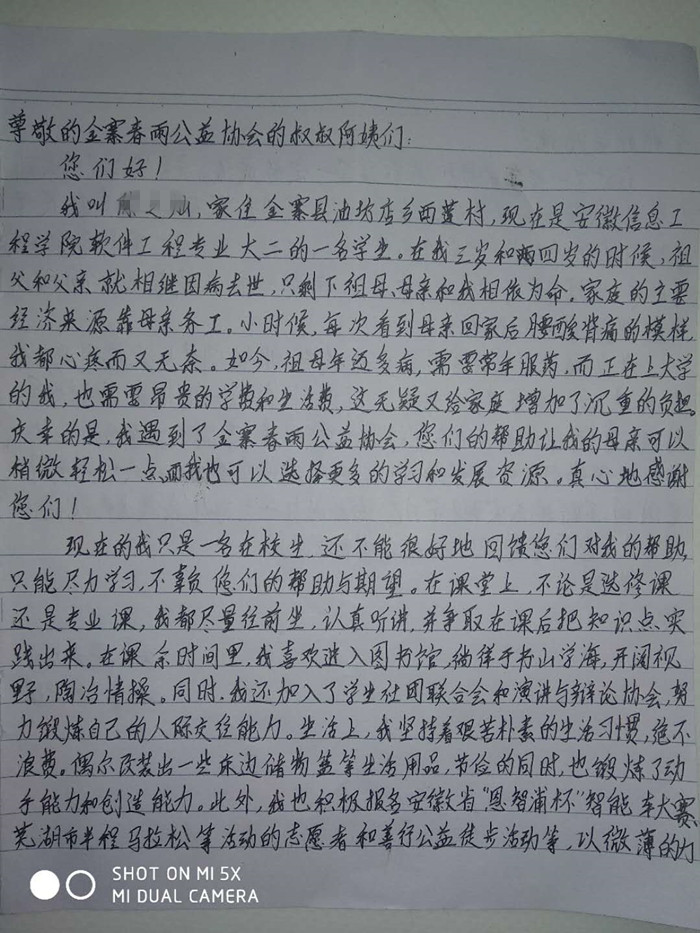 尊敬的金寨春雨公益协会的叔叔阿姨们:
您们好!
我叫 , 家住金寨县油坊店乡西莲村, 现在是安徽信息工
程学院软件工程专业大二的一名学生。在我三岁和四岁的时候, 祖
父和父亲就相继因病去世, 只剩下祖母、母亲和我相依为命。家庭的主要
经济来源靠母亲务工。小时候, 每次看到母亲回家后腰酸背痛的模样,
我都心疼而又无奈。如今, 祖母年迈多病, 需要常年服药, 而正在上大学
的我, 也需要昂贵的学费和生活费, 这无疑又给家庭增加了沉重的负担。
庆幸的是, 我遇到了金寨春雨公益协会, 您们的帮助让我的母亲可以
稍微轻松一点, 而我也可以选择更多的学习和发展资源。真心地感谢
您们!
现在的我只是一名在校生, 还不能很好地回馈您们对我的帮助,
只能尽力学习, 不辜负您们的帮助与期望。在课堂上, 不论是选修课
还是专业课, 我都尽量往前坐, 认真听讲, 并争取在课后把知识点实
践出来。在课余时间里, 我喜欢进入图书馆, 徜徉于书山学海, 开阔视
野, 陶冶情操。同时, 我还加入了学生社团联合会和演讲与辩论协会, 努
力锻炼自己的人际交往能力。生活上, 我坚持着艰苦朴素的生活习惯, 绝不
浪费。偶尔改装出一些床边储物篮等生活用品, 节俭的同时, 也锻炼了动
手能力和创造能力。此外, 我也积极报名安徽省“恩智浦杯”智能车大赛、
芜湖市半程马拉松等活动的志愿者和善行公益徒步活动等, 以微薄的力
SHOT ON MI 5X
MI DUAL CAMERA